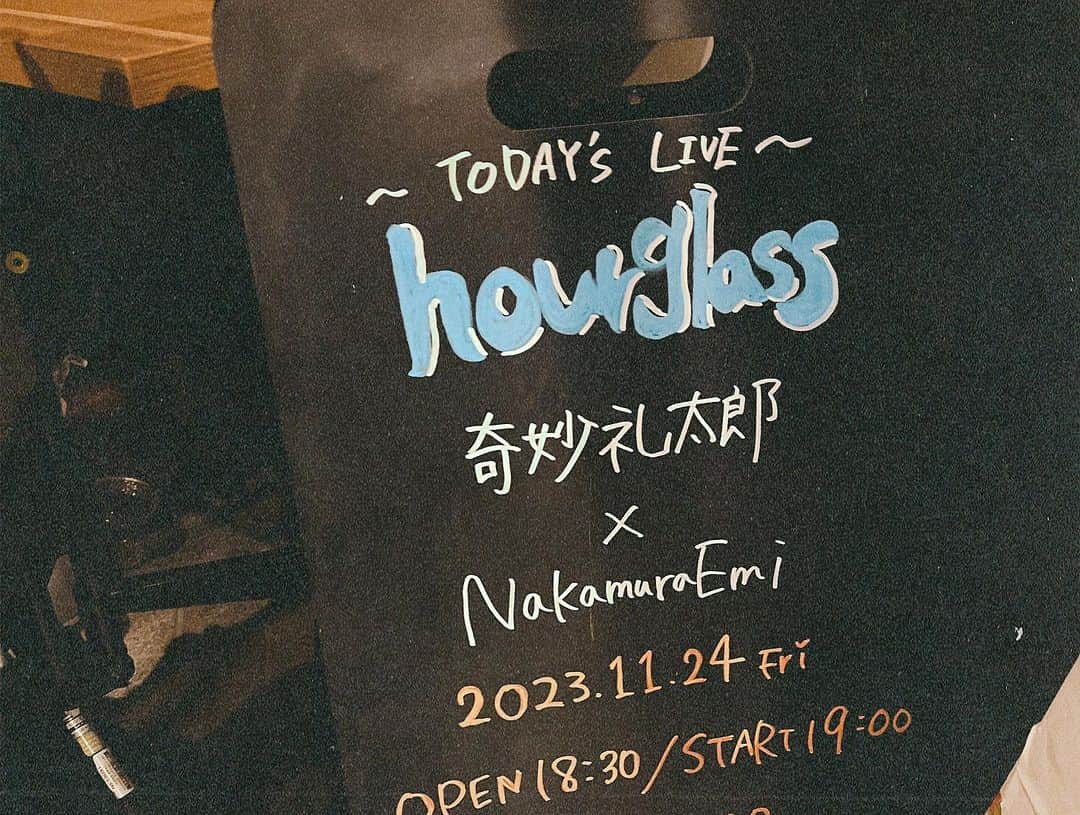 ~ TODAY's LIVE ~
hourglass
奇妙礼太郎
×
NakamuraEmi
2023.11.24 Fri
OPEN 18:30/START 19:00